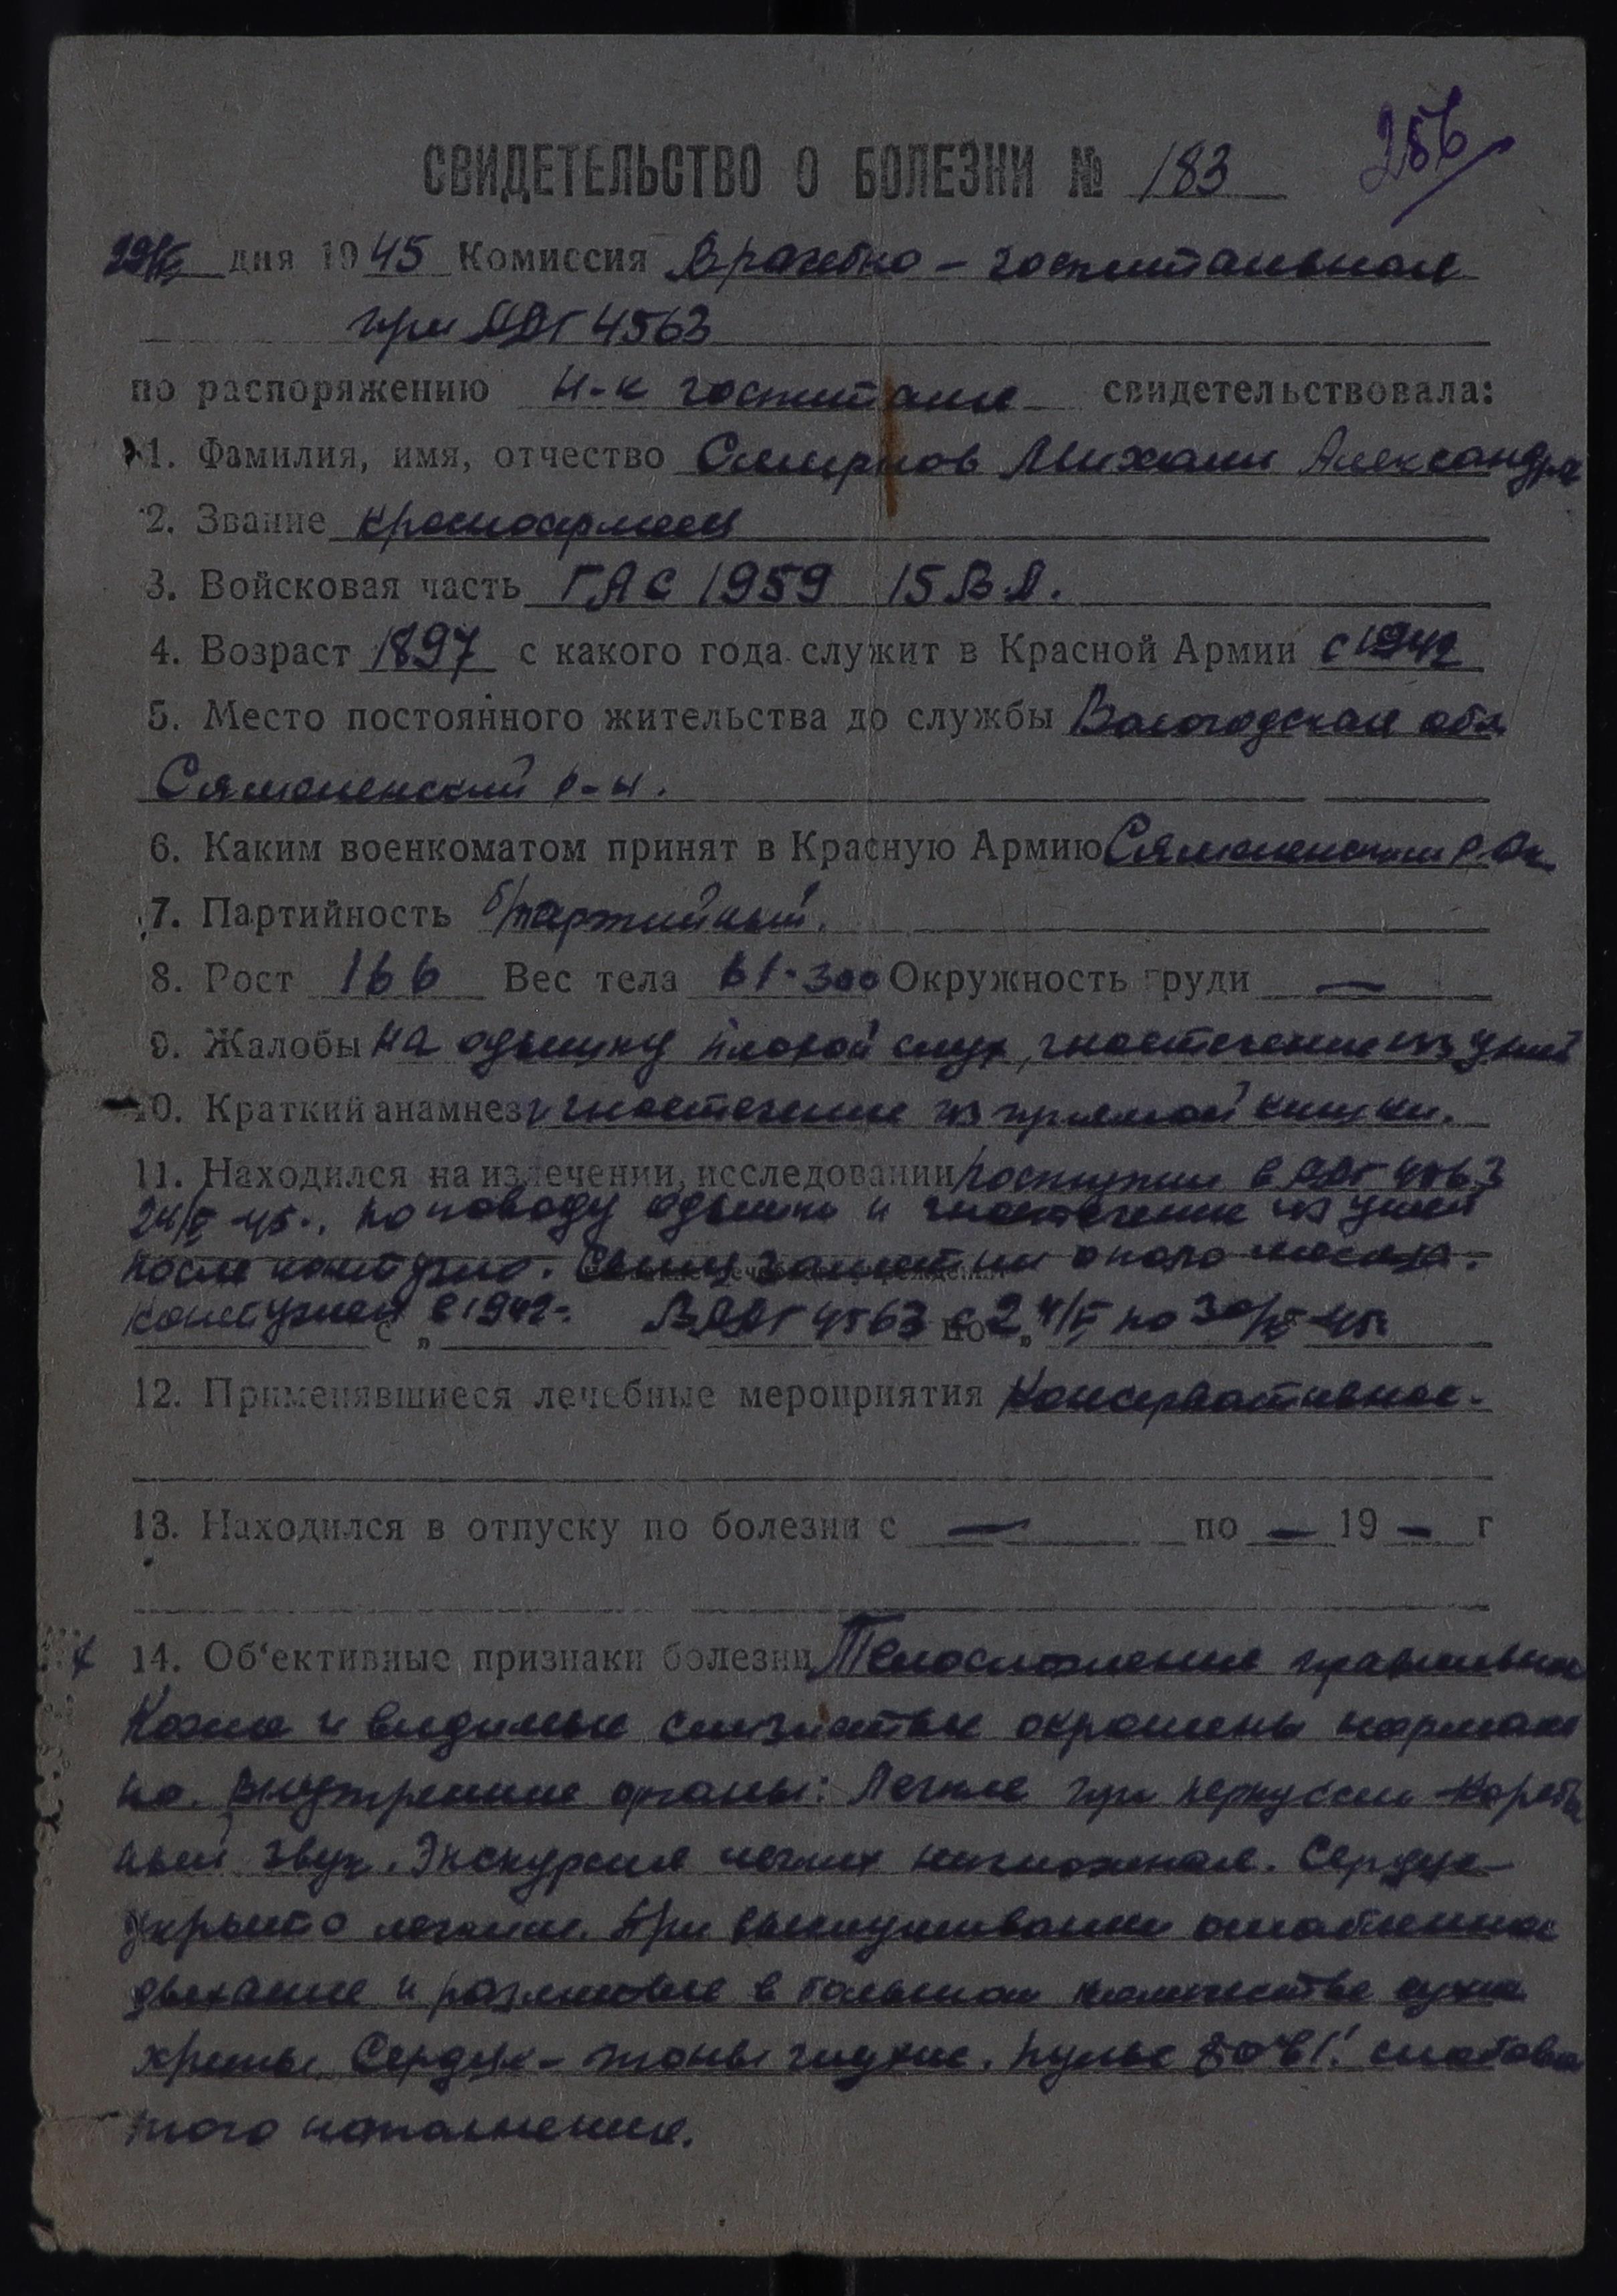 256
СВИДЕТЕЛЬСТВО О БОЛЕЗНИ № 183
дня 1945 Комиссия Врачебно - госпитальная
при 4563
по распоряжению н-к госпиталя свидетельствовала:
1. Фамилия, имя, отчество Смирнов Михаил Александро
2. Звание красноармеец
3. Войсковая часть ГАС 1959 15 В.А.
4. Возраст 1897 с какого года служит в Красной Армии с 1942
5. Место постоянного жительства до службы Вологодская обл
Сямженский р-н.
6. Каким военкоматом принят в Красную Армию Сямженским
7. Партийность б/партийный.
8. Рост 166 Вес тела 61·300 Окружность груди —
9. Жалобы на одышку плохой слух, гноетечение из ушей
10. Краткий анамнез и гноетечение из прямой кишки.
11. Находился на излечении, исследовании поступил в 4563
24/ 45., по поводу одышки и гноетечение из ушей
после контузии. около месяца.
Контужен в 1942. В 4563 с 24/ по 30/ 45
12. Применявшиеся лечебные мероприятия Консервативное.
13. Находился в отпуску по болезни с — по — 19 — г
14. Об‘ективные признаки болезни Телосложение правильное
Кожа и видимые слизистые окрашены нормаль
но. Внутренние органы: Легкие при перкуссии короб
ный звук. Экскурсия легких Сердце
укрыто легкими. При выслушивании ослабленное
дыхание и в большом количестве сухие
хрипы. Сердце - тоны глухие. Пульс 80 в 1' слабова
того наполнения.